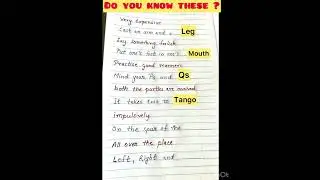 DO YOU KNOW THESE ?
Very Expensive
Cost an arm and a Leg
Say something foolish
Put one's foot in one's Mouth
Practise good manners
Mind your Ps and Qs
Both the parties are involved
It takes two to Tango
Impulsively
On the spur of the
All over the place
Left, Right and